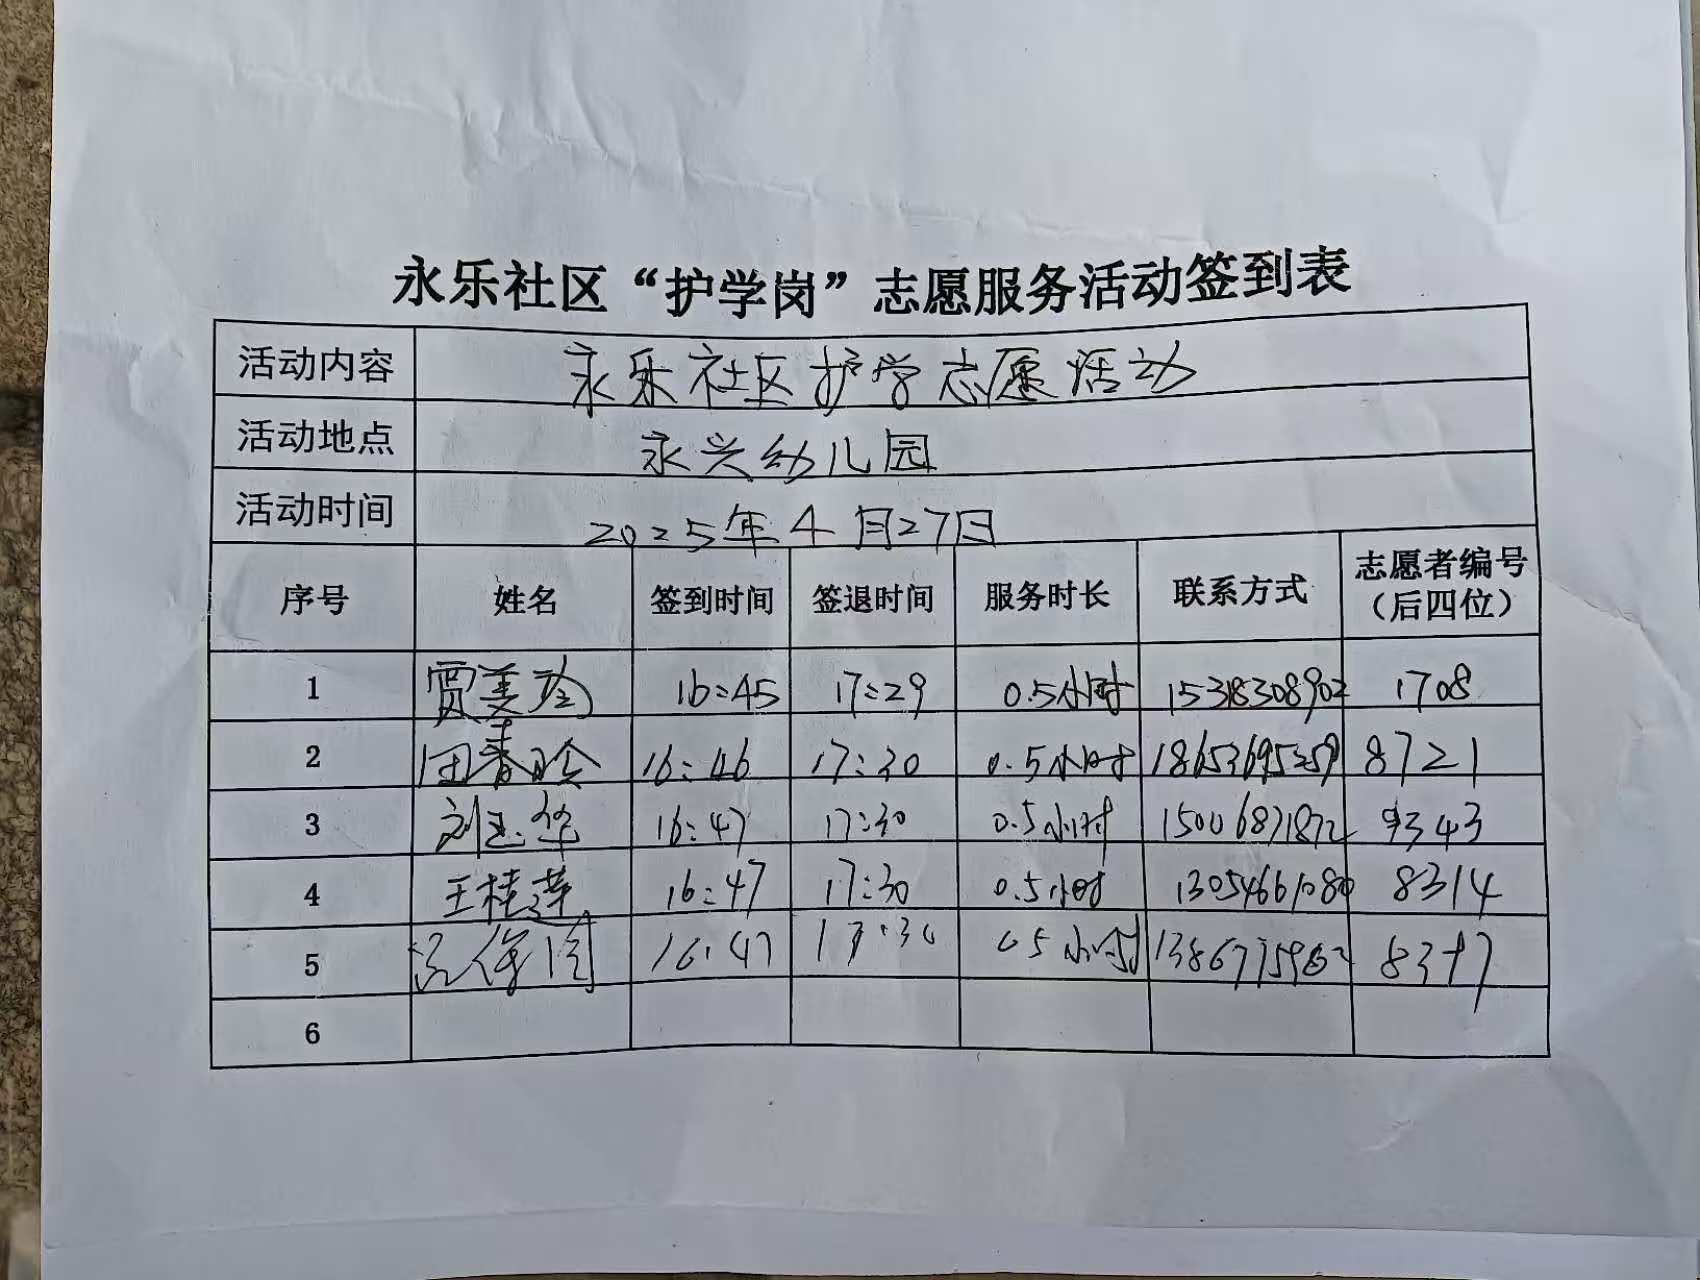 永乐社区“护学岗”志愿服务活动签到表
活动内容 永乐社区护学志愿活动
活动地点 永兴幼儿园
活动时间 2025年4月27日
序号 姓名 签到时间 签退时间 服务时长 联系方式 志愿者编号（后四位）
1 贾美玲 16:45 17:29 0.5小时 15318308902 1708
2 田春玲 16:46 17:30 0.5小时 18653695259 8721
3 刘玉华 16:47 17:30 0.5小时 15006871872 9343
4 王桂莲 16:47 17:30 0.5小时 13054661080 8314
5 16:47 17:30 0.5小时
6